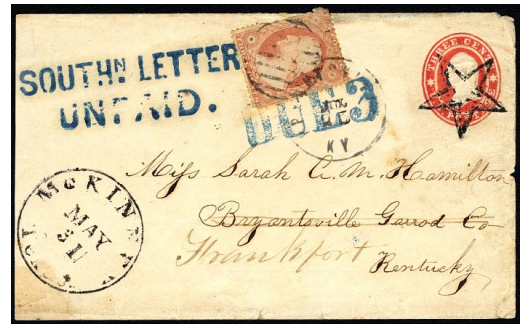 SOUTHN LETTER
UNPAID.
DUE 3
THREE CENTS
KY
McKINNEY
MAY
31
Miss Sarah A. M. Hamilton
Bryantsville Garrod Co
Frankfort
Kentucky